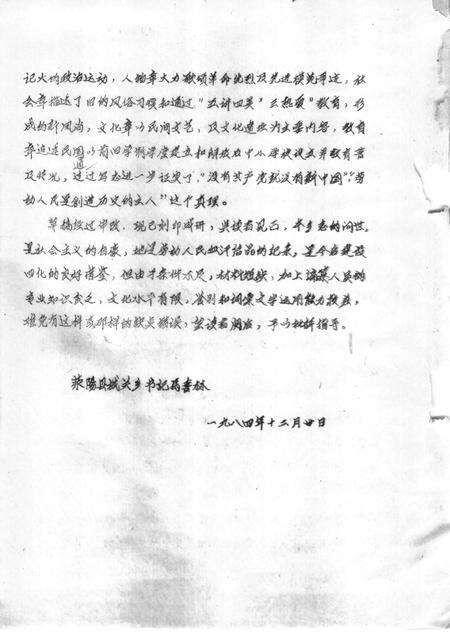 记大的政治运动，人物章大力歌颂革命先烈及先进模范事迹，社
会章描述了旧的风俗习惯和通过“五讲四美”三热爱“教育，形
成的新风尚，文化章以民间文艺，及文化遗址为主要内容，教育
章追述民国以前四学期学度建立和解放后中小学校设立并教育普
及情况，通过写志进一步证实了，“没有共产党就没有新中国”，“劳
动人民是创造历史的主人”这个真理。
草稿经过审改，现已刻印成册，与读者见面，本乡志的问世，
是社会主义的自豪，她是劳动人民血汗结晶的记录，是今后建设
四化的良好借鉴，但由于条件不足，材料短缺，加上编纂人员的
专业知识贫乏，文化水平有限，鉴别和词案文学运用能力较差，
难免有这样或那样的缺点错误，望读者阅后，予以批评指导。
荥阳县城关乡书记
一九八四年十二月四日